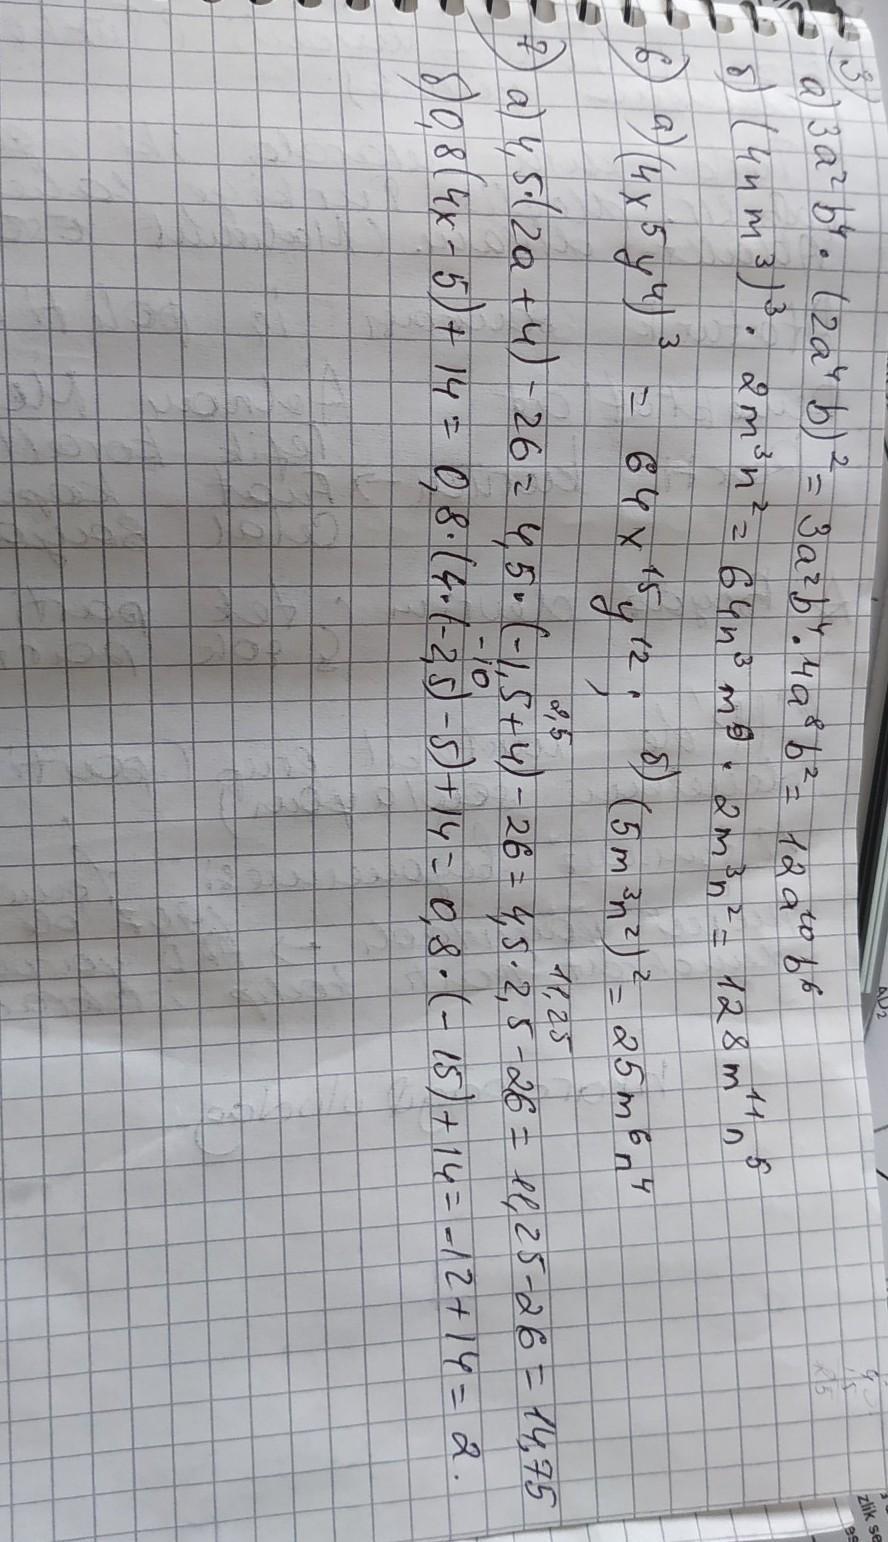 3)
а) 3a²b⁴ · (2a⁴b)² = 3a²b⁴ · 4a⁸b² = 12a¹⁰b⁶
б) (4nm³)³ · 2m³n² = 64n³m⁹ · 2m³n² = 128m¹¹n⁵
6) а) (4x⁵y⁴)³ = 64x¹⁵y¹², б) (5m³n²)² = 25m⁶n⁴
2,5 11,25
7) а) 4,5·(2a+4) - 26 = 4,5·(-1,5+4) - 26 = 4,5·2,5 - 26 = 11,25 - 26 = 14,75
-10
б) 0,8(4x-5) + 14 = 0,8·(4·(-2,5)-5) + 14 = 0,8·(-15) + 14 = -12 + 14 = 2.